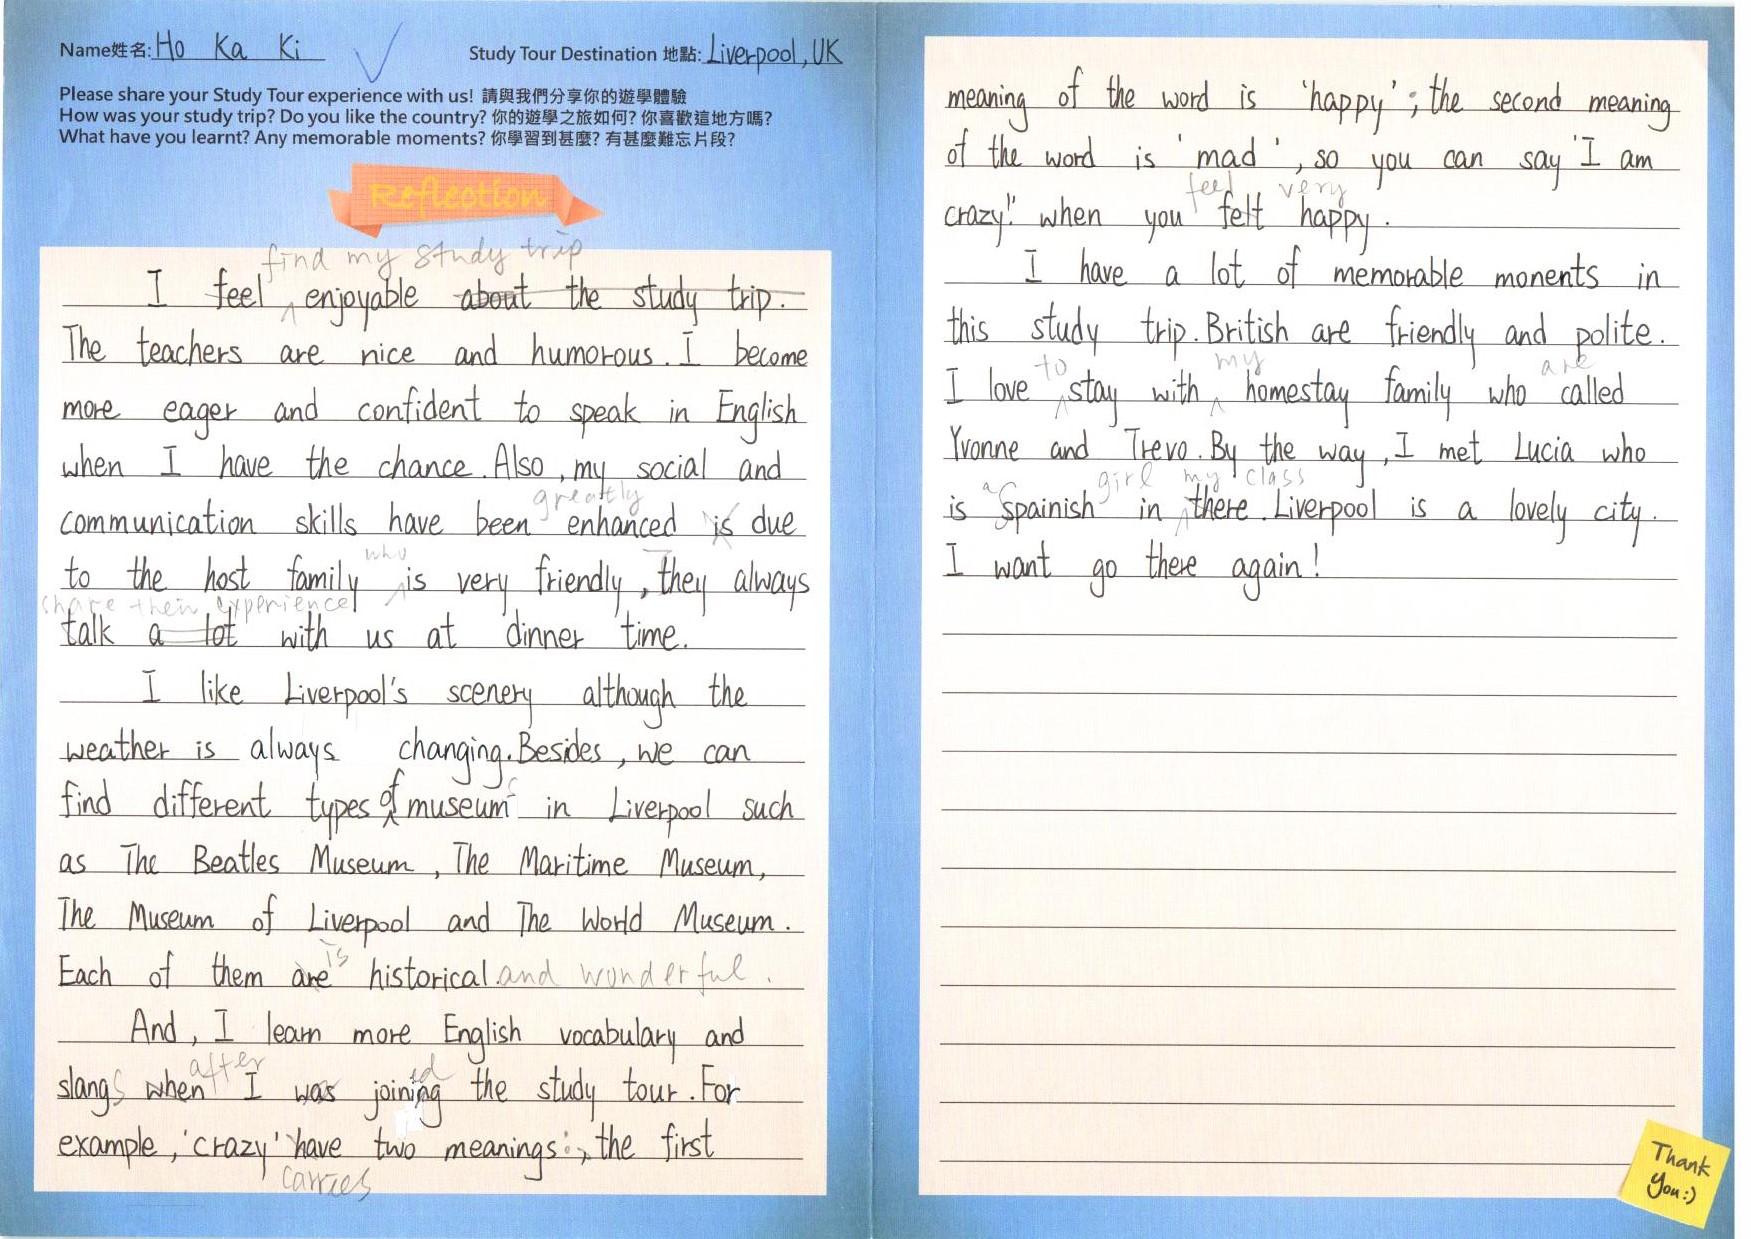 Name姓名: Ho Ka Ki
Study Tour Destination 地點: Liverpool, UK
Please share your Study Tour experience with us! 請與我們分享你的遊學體驗
How was your study trip? Do you like the country? 你的遊學之旅如何? 你喜歡這地方嗎?
What have you learnt? Any memorable moments? 你學習到甚麼? 有甚麼難忘片段?
Reflection
find my study trip
I feel enjoyable about the study trip.
The teachers are nice and humorous. I become
more eager and confident to speak in English
when I have the chance. Also, my social and
greatly
communication skills have been enhanced is due
who
to the host family is very friendly, they always
share their experience
talk a lot with us at dinner time.
I like Liverpool's scenery although the
weather is always changing. Besides, we can
find different types of museums in Liverpool such
as The Beatles Museum, The Maritime Museum,
The Museum of Liverpool and The World Museum.
is
Each of them are historical. and wonderful.
And, I learn more English vocabulary and
after ed
slangs when I was joining the study tour. For
example, 'crazy' have two meanings:, the first
carries
meaning of the word is 'happy'; the second meaning
of the word is 'mad', so you can say 'I am
feel very
crazy!' when you felt happy.
I have a lot of memorable monents in
this study trip. British are friendly and polite.
to my are
I love stay with homestay family who called
Yvonne and Trevo. By the way, I met Lucia who
a girl my class
is Spainish in there. Liverpool is a lovely city.
I want go there again!
Thank
You:)